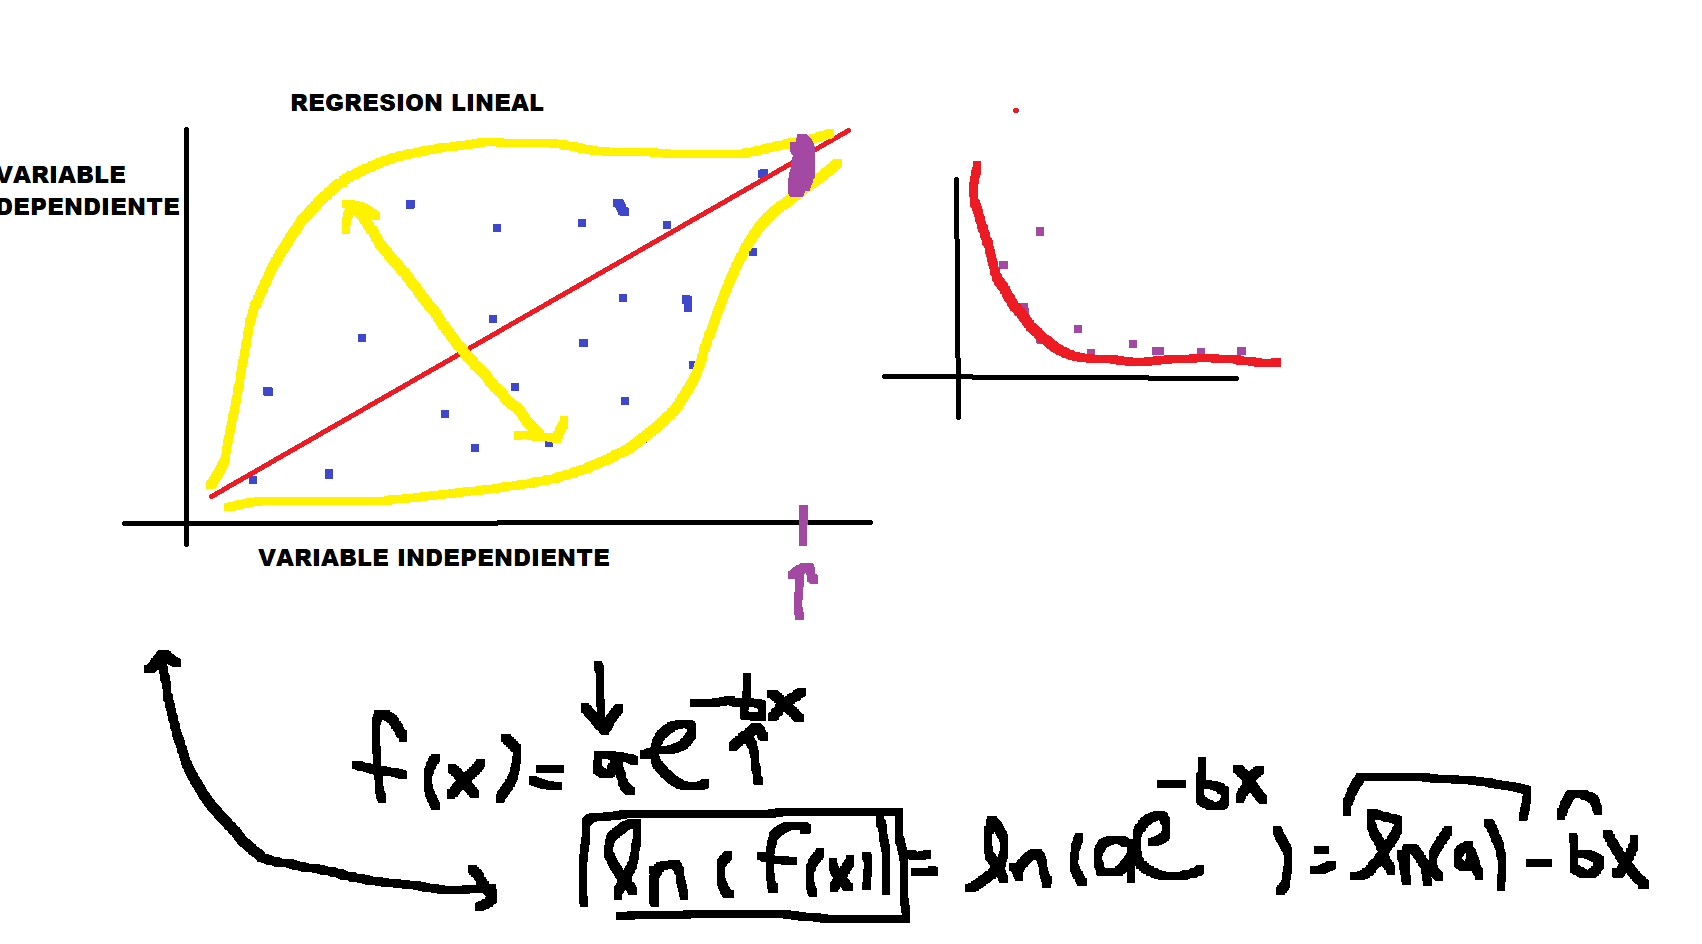 REGRESION LINEAL
VARIABLE
DEPENDIENTE
VARIABLE INDEPENDIENTE
f(x) = ae^{-bx}
ln(f(x)) = ln(ae^{-bx}) = ln(a) - bx